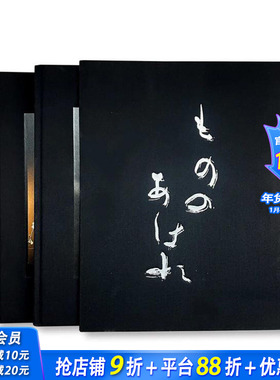 ものの
あはれ
年货
1月
会员
减10元
减20元
抢店铺9折+平台88折+优惠